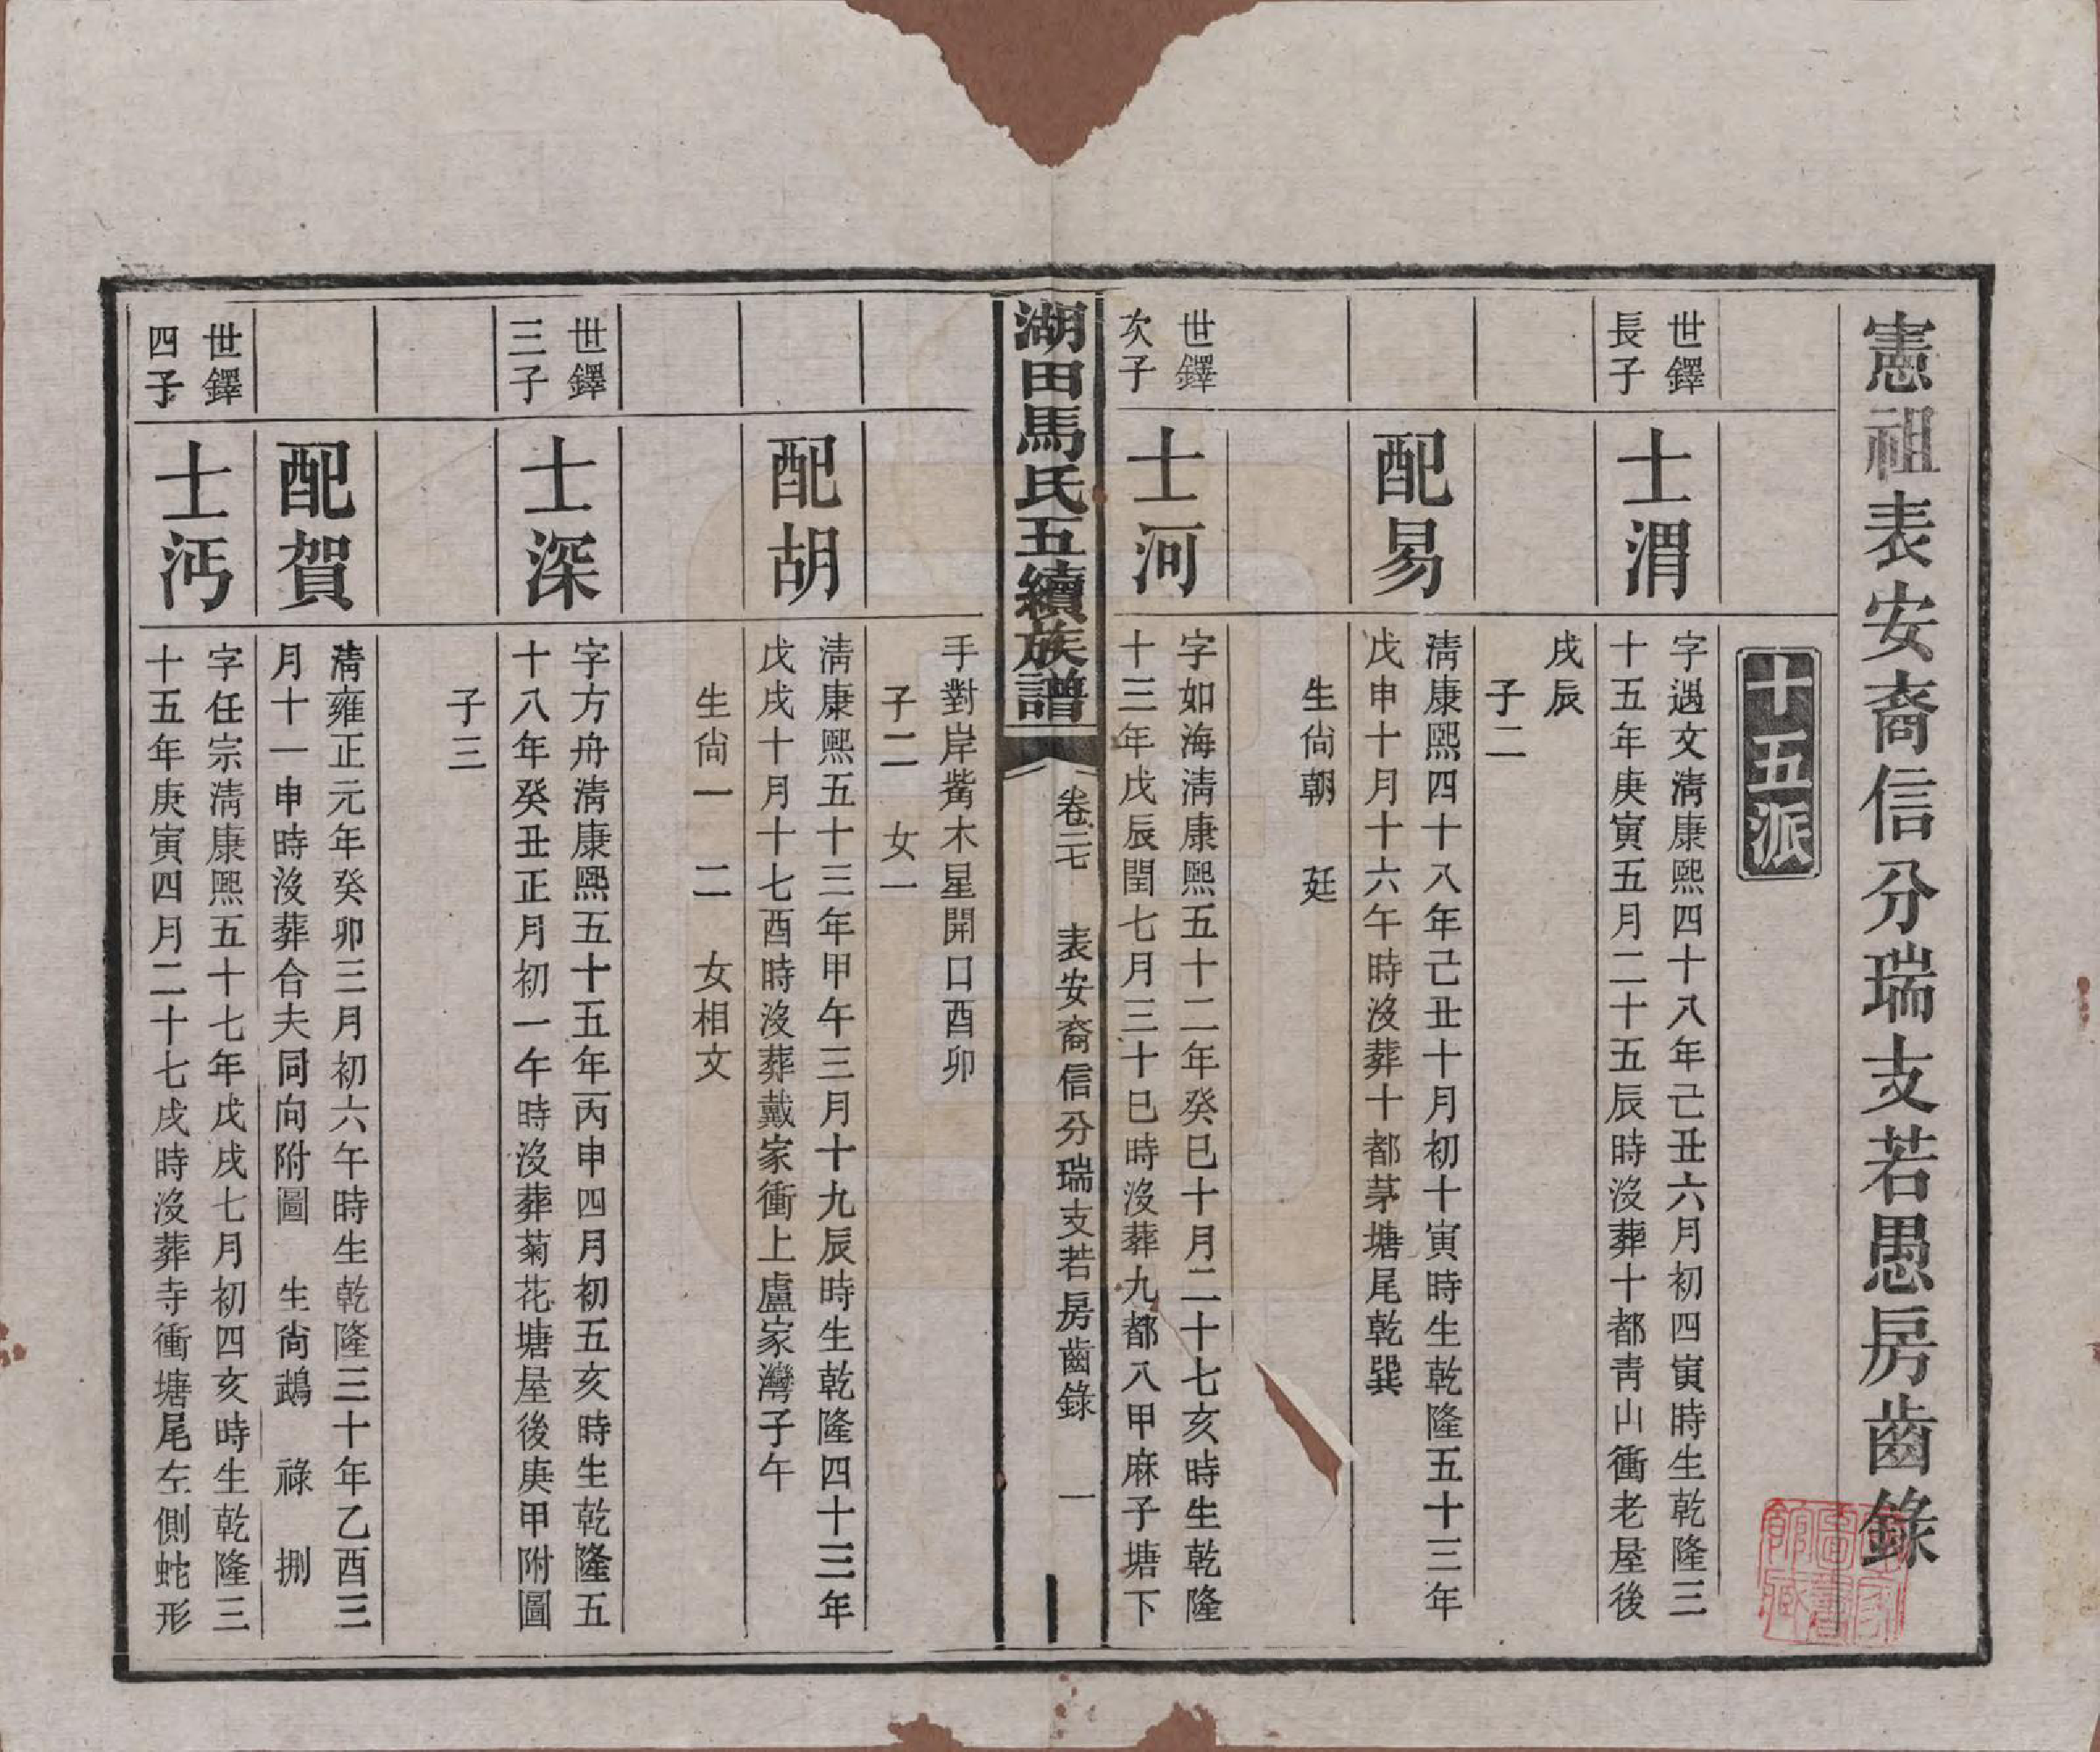 憲祖表安裔信分瑞支若愚房齒錄
十五派
世鐸
長子
士渭
字遇文淸康熙四十八年己丑六月初四寅時生乾隆三
十五年庚寅五月二十五辰時沒葬十都靑山衝老屋後
戌辰
子二
配易
淸康熙四十八年己丑十月初十寅時生乾隆五十三年
戊申十月十六午時沒葬十都茅塘尾乾巽
生尙朝　廷
世鐸
次子
士河
字如海淸康熙五十二年癸巳十月二十七亥時生乾隆
十三年戊辰閏七月三十巳時沒葬九都八甲麻子塘下
湖田馬氏五續族譜
卷二七
表安裔信分瑞支若房齒錄
一
手對岸觜木星開口酉卯
子二　女一
配胡
淸康熙五十三年甲午三月十九辰時生乾隆四十三年
戊戌十月十七酉時沒葬戴家衝上盧家灣子午
生尙一　二　女相文
世鐸
三子
士深
字方舟淸康熙五十五年丙申四月初五亥時生乾隆五
十八年癸丑正月初一午時沒葬菊花塘屋後庚甲附圖
子三
配賀
淸雍正元年癸卯三月初六午時生乾隆三十年乙酉三
月十一申時沒葬合夫同向附圖　生尙鵡　祿　捌
世鐸
四子
士沔
字任宗淸康熙五十七年戊戌七月初四亥時生乾隆三
十五年庚寅四月二十七戌時沒葬寺衝塘尾左側蛇形